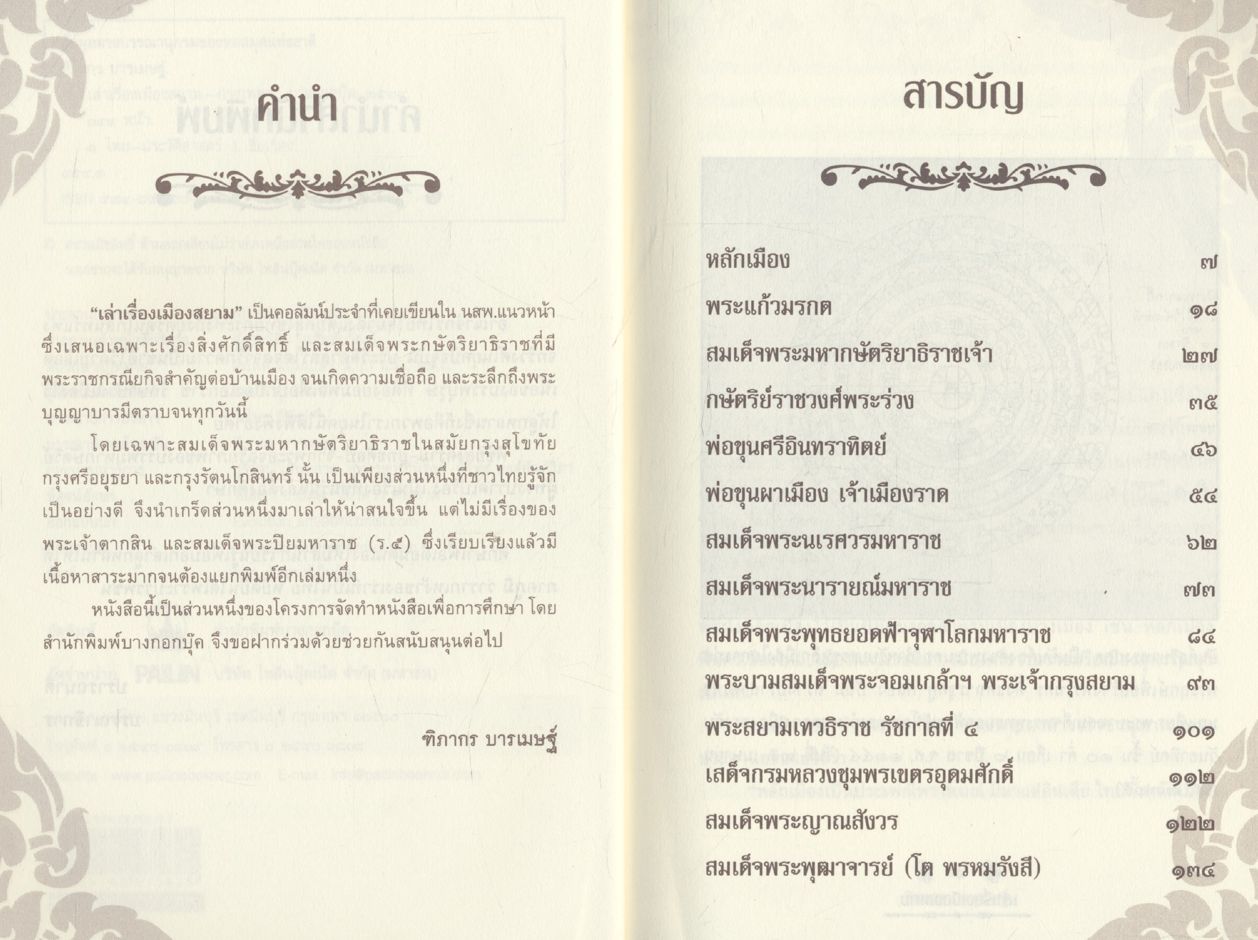 คำนำ
“เล่าเรื่องเมืองสยาม” เป็นคอลัมน์ประจำที่เคยเขียนใน นสพ.แนวหน้า
ซึ่งเสนอเฉพาะเรื่องสิ่งศักดิ์สิทธิ์ และสมเด็จพระกษัตริยาธิราชที่มี
พระราชกรณียกิจสำคัญต่อบ้านเมือง จนเกิดความเชื่อถือ และระลึกถึงพระ
บุญญาบารมีตราบจนทุกวันนี้
โดยเฉพาะสมเด็จพระมหากษัตริยาธิราชในสมัยกรุงสุโขทัย
กรุงศรีอยุธยา และกรุงรัตนโกสินทร์ นั้น เป็นเพียงส่วนหนึ่งที่ชาวไทยรู้จัก
เป็นอย่างดี จึงนำเกร็ดส่วนหนึ่งมาเล่าให้น่าสนใจขึ้น แต่ไม่มีเรื่องของ
พระเจ้าตากสิน และสมเด็จพระปิยมหาราช (ร.๕) ซึ่งเรียบเรียงแล้วมี
เนื้อหาสาระมากจนต้องแยกพิมพ์อีกเล่มหนึ่ง
หนังสือนี้เป็นส่วนหนึ่งของโครงการจัดทำหนังสือเพื่อการศึกษา โดย
สำนักพิมพ์บางกอกบุ๊ค จึงขอฝากร่วมด้วยช่วยกันสนับสนุนต่อไป
ฑิภากร บารเมษฐ์
สารบัญ
หลักเมือง ๗
พระแก้วมรกต ๑๘
สมเด็จพระมหากษัตริยาธิราชเจ้า ๒๗
กษัตริย์ราชวงศ์พระร่วง ๓๕
พ่อขุนศรีอินทราทิตย์ ๔๖
พ่อขุนผาเมือง เจ้าเมืองราด ๕๔
สมเด็จพระนเรศวรมหาราช ๖๒
สมเด็จพระนารายณ์มหาราช ๗๓
สมเด็จพระพุทธยอดฟ้าจุฬาโลกมหาราช ๘๔
พระบามสมเด็จพระจอมเกล้าฯ พระเจ้ากรุงสยาม ๙๓
พระสยามเทวธิราช รัชกาลที่ ๔ ๑๐๑
เสด็จกรมหลวงชุมพรเขตรอุดมศักดิ์ ๑๑๒
สมเด็จพระญาณสังวร ๑๒๒
สมเด็จพระพุฒาจารย์ (โต พรหมรังสี) ๑๓๔